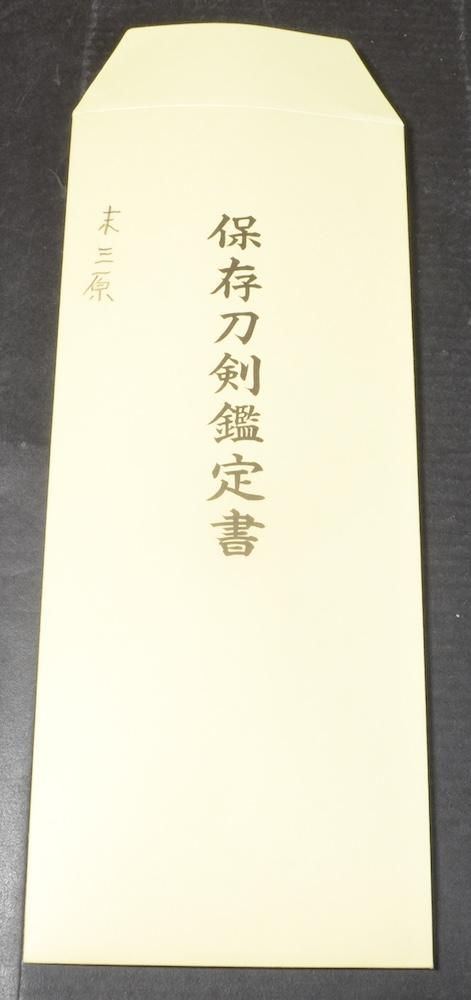 保存刀剣鑑定書
末三原